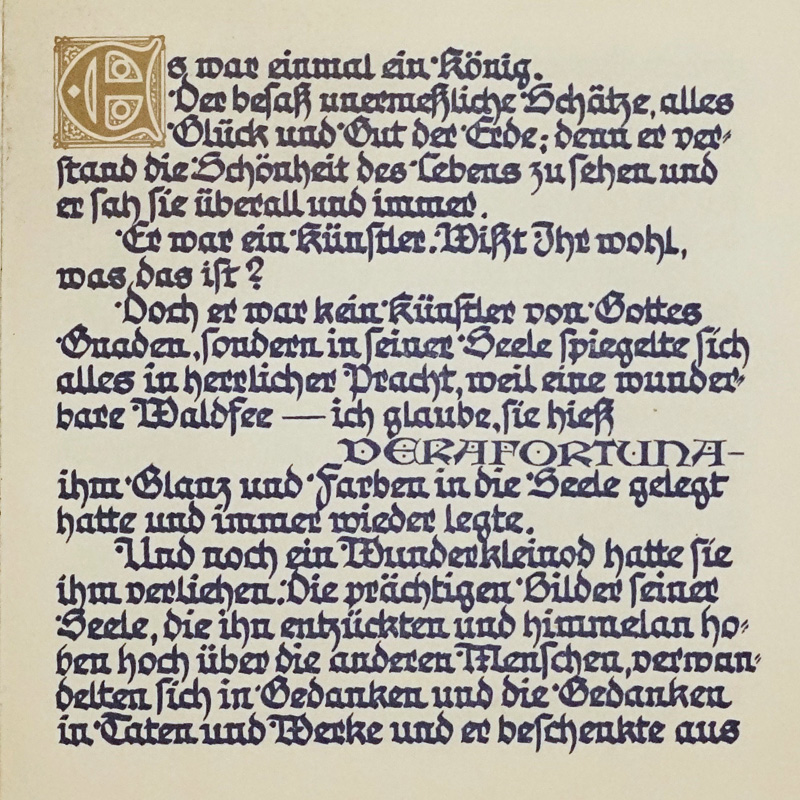 Es war einmal ein König.
Der besaß unermeßliche Schätze, alles
Glück und Gut der Erde; denn er ver-
stand die Schönheit des Lebens zu sehen und
er sah sie überall und immer.
Er war ein Künstler. Wißt Ihr wohl,
was das ist?
Doch er war kein Künstler von Gottes
Gnaden, sondern in seiner Seele spiegelte sich
alles in herrlicher Pracht, weil eine wunder-
bare Waldfee — ich glaube, sie hieß
VERA FORTUNA —
ihm Glanz und Farben in die Seele gelegt
hatte und immer wieder legte.
Und noch ein Wunderkleinod hatte sie
ihm verliehen. Die prächtigen Bilder seiner
Seele, die ihn entzückten und himmelan ho-
ben hoch über die anderen Menschen, verwan-
delten sich in Gedanken und die Gedanken
in Taten und Werke und er beschenkte aus